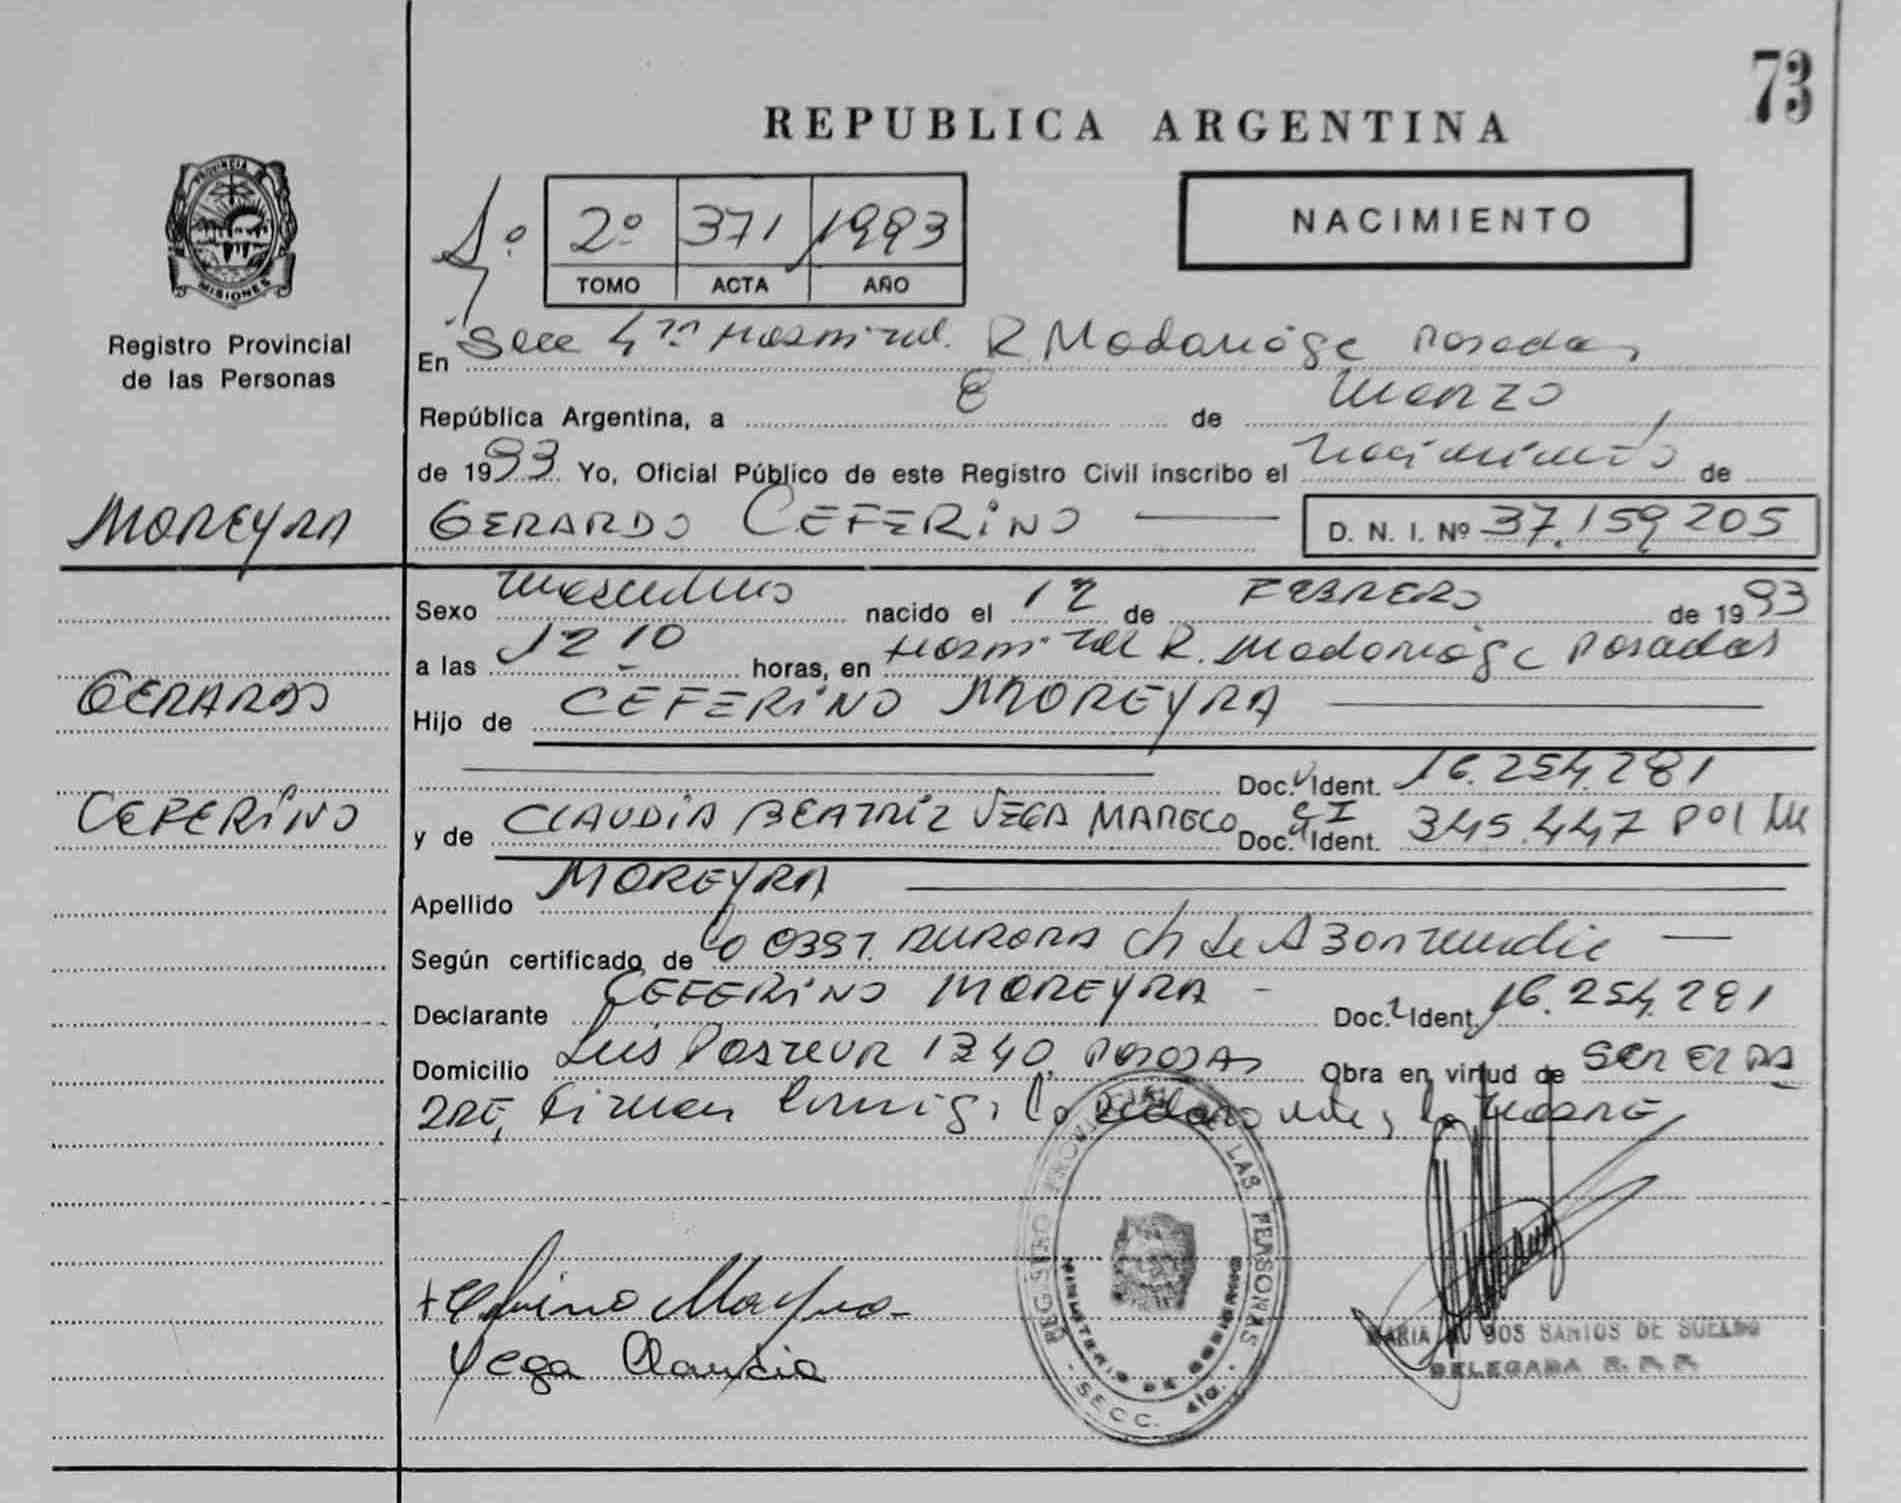 73
REPUBLICA ARGENTINA
PROVINCIA DE
MISIONES
Registro Provincial
de las Personas
NACIMIENTO
2º 371 1993
TOMO ACTA AÑO
En Secc 4ta Hospital R. Madariaga Posadas
República Argentina, a 8 de Marzo
de 1993 Yo, Oficial Público de este Registro Civil inscribo el nacimiento de
MOREYRA
GERARDO CEFERINO D. N. I. Nº 37.159.205
Sexo masculino nacido el 12 de FEBRERO de 1993
a las 12 10 horas, en Hospital R. Madariaga Posadas
GERARDO
Hijo de CEFERINO MOREYRA
Doc. Ident. 16.254.281
CEFERINO
y de CLAUDIA BEATRIZ VEGA MARECO Doc. Ident. CI 345.447 Pol
Apellido MOREYRA
Según certificado de AURORA Ch de
Declarante CEFERINO MOREYRA Doc. Ident. 16.254.281
Domicilio Luis Pasteur 1340 POSADAS Obra en virtud de SER EL PA
DRE, Firman conmigo el declarante y la MADRE
REGISTRO PROVINCIAL DE LAS PERSONAS
MINISTERIO DE GOBIERNO
SECC. 4ta.
Ceferino Moreyra
Vega Claudia
MARIA DOS SANTOS DE SUELDO
DELEGADA R. P. P.